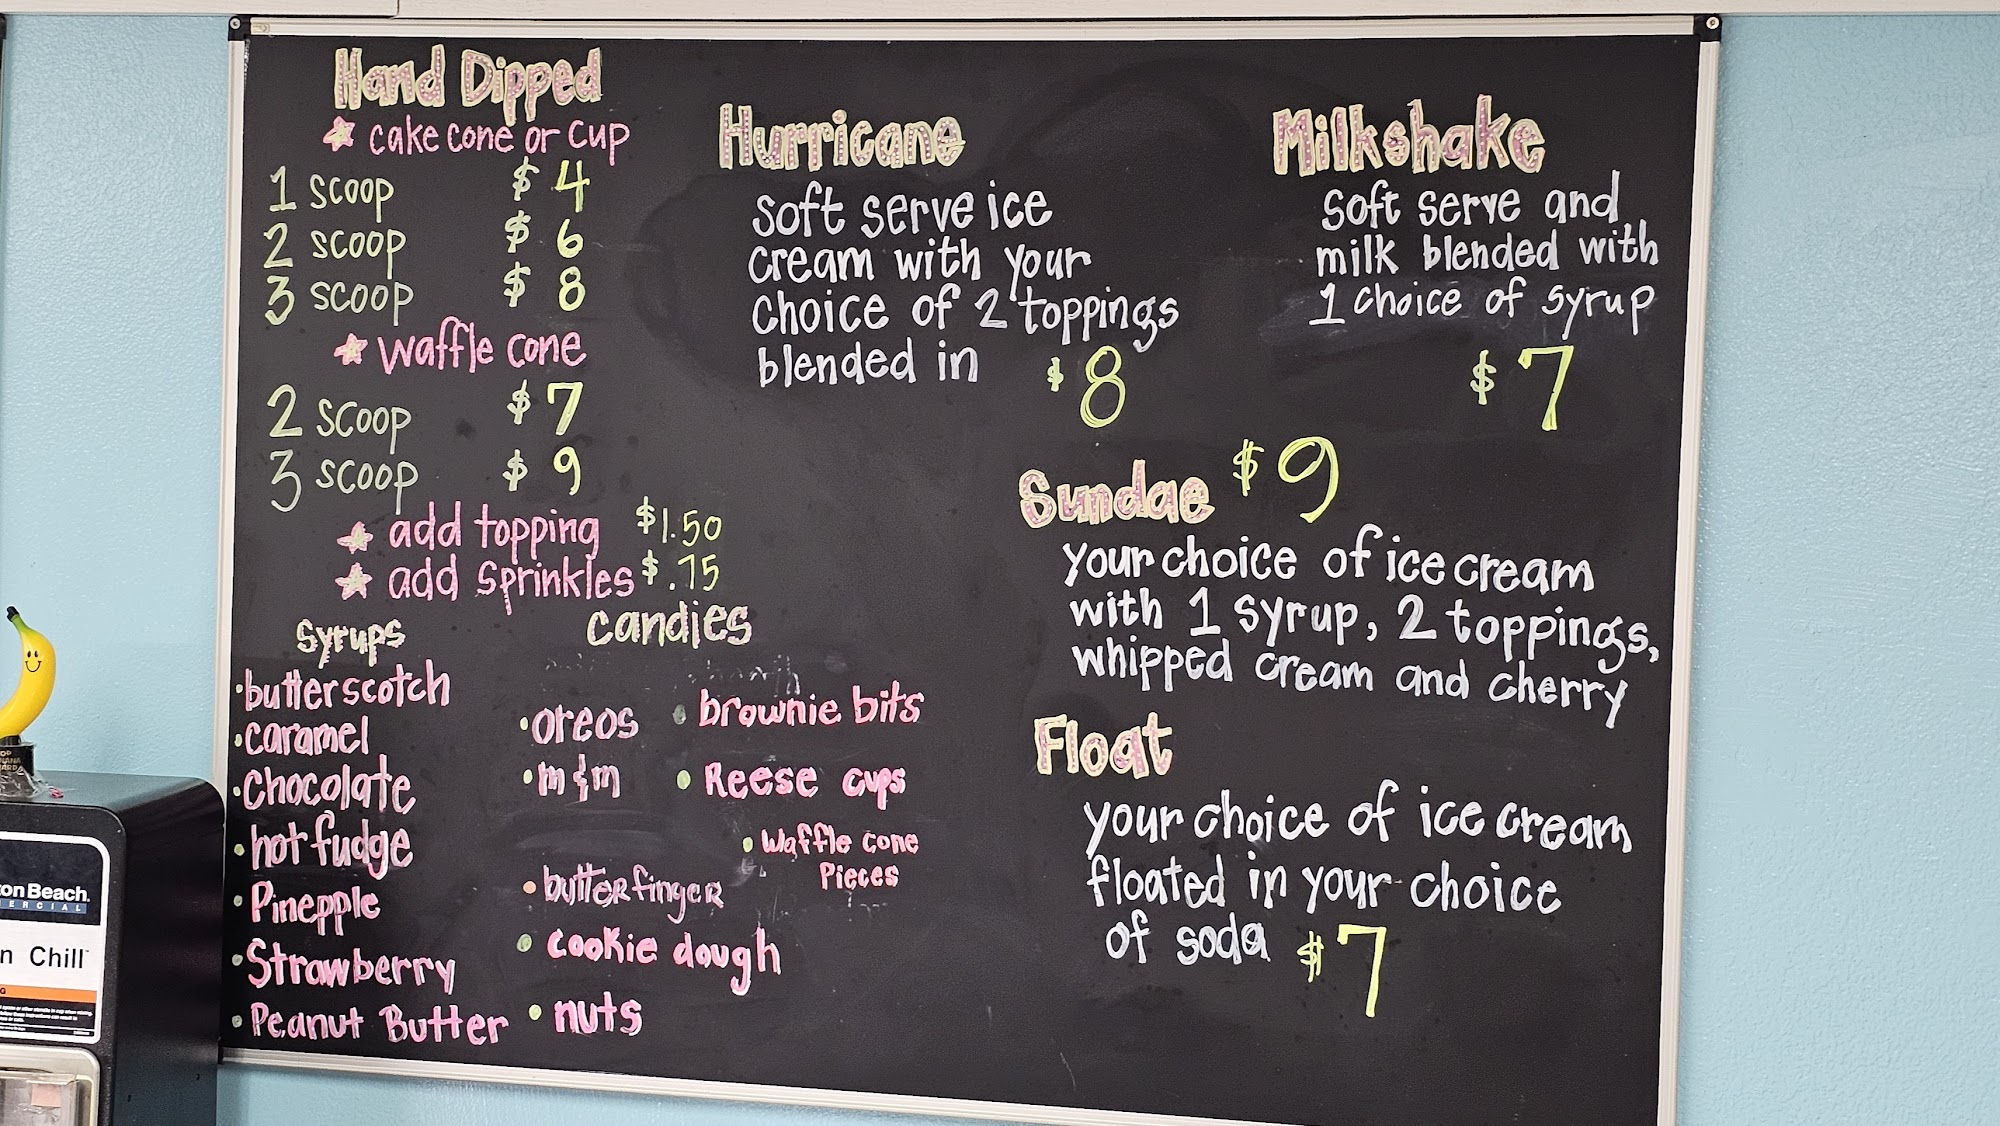 Hand Dipped
cake cone or cup
1 scoop $ 4
2 scoop $ 6
3 scoop $ 8
waffle cone
2 scoop $ 7
3 scoop $ 9
add topping $1.50
add sprinkles $.75
Syrups
butterscotch
caramel
Chocolate
hot fudge
Pineapple
Strawberry
Peanut Butter
candies
oreos
m&m
butterfinger
cookie dough
nuts
brownie bits
Reese cups
Waffle cone
Pieces
Hurricane
soft serve ice
cream with your
choice of 2 toppings
blended in $8
Milkshake
soft serve and
milk blended with
1 choice of syrup
$7
Sundae $9
your choice of ice cream
with 1 syrup, 2 toppings,
whipped cream and cherry
Float
your choice of ice cream
floated in your choice
of soda $7
Beach.
Chill™